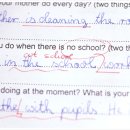 our mother do every day? (two thing
her is cleaning the ro
u do when there is no school? (two th
at school
in the school
doing at the moment? What is your
the with pupils He